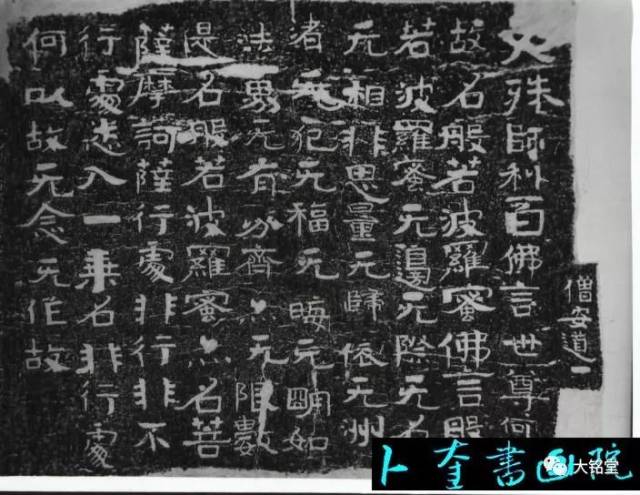 僧安道一
文殊師利白佛言世尊何
故名般若波羅蜜佛言般
若波羅蜜无邊无際无名
无相非思量无歸依无州
渚无犯无福无晦无明如
法界无有分齊亦无限數
是名般若波羅蜜亦名菩
薩摩訶薩行處非行非不
行處悉入一乘名非行處
何以故无念无作故
卜奎書画院
大铭堂